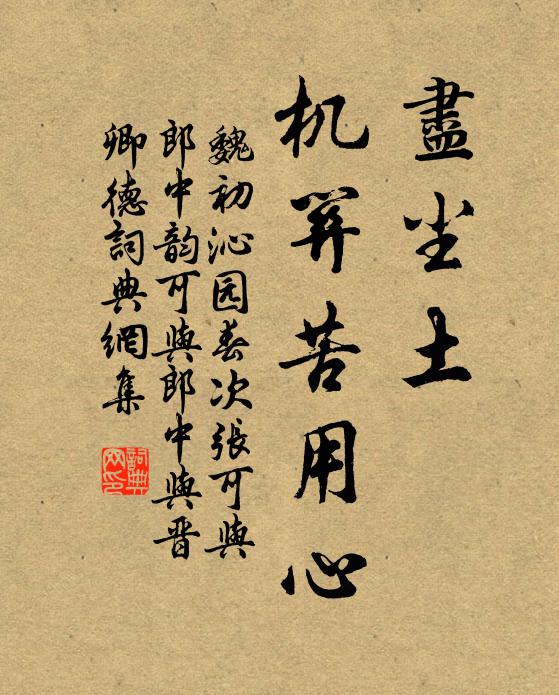 盡尘土
机筭苦用心
魏初沁园春次張可與
郎中韵可與郎中與晋
卿德詞典網集
詞典网印